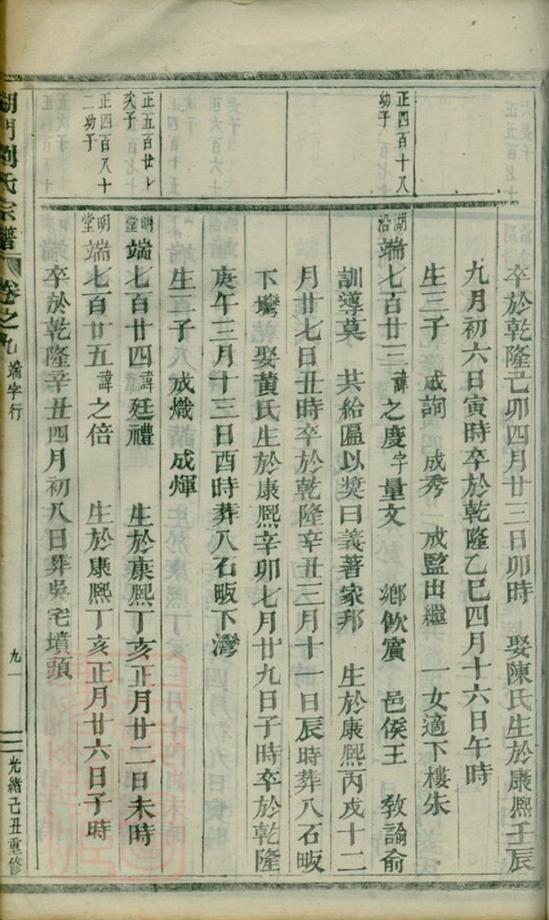 卒於乾隆己卯四月廿三日卯時　娶陳氏生於康熙壬辰
九月初六日寅時卒於乾隆乙巳四月十六日午時
生三子　成詢　成秀　成監出繼　一女適下樓朱
正四百十八
幼子
湖沿端七百廿三諱之慶字量文　鄉飲賓　邑侯王　敎諭俞
訓導莫　共給匾以奬曰義著家邦　生於康熙丙戌十二
月廿七日丑時卒於乾隆辛丑三月十一日辰時葬八石畈
下塆娶黃氏生於康熙辛卯七月廿九日子時卒於乾隆
庚午三月十三日酉時葬八石畈下灣
生二子　成熾　成煇
正五百廿
次子
明堂端七百廿四諱廷禮　生於康熙丁亥正月廿二日未時
正四百八十
二幼子
明堂端七百廿五諱之倍　生於康熙丁亥正月廿六日子時
卒於乾隆辛丑四月初八日葬吳宅墳頭
湖門劉氏宗譜　卷之九　端字行　九一　光緒己丑重修